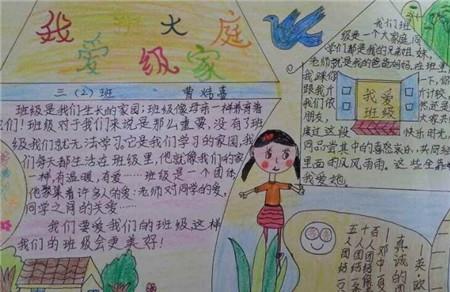 我班大庭
爱级家
三（2）班 曹
班级是我们生长的家园；班级像母亲一样抚育着
们！班级对于我们来说是那么重要，没有了班
级我们就无法学习。它是我们学习的家园，我
们每天都生活在班级里，他就像我们的家
一样，有温暖，有爱……班级是一个团体
他聚集着许多人的爱：老师对同学的爱，
同学之间的关爱……
我们要爱我们的班级，这样
我们的班级会更美好！
我们班
级是一个大家庭，同
学们都是我的兄弟姐妹，
老师就是我的爸爸妈妈。在班里，
我爱
班级
朋友，
度过这段
快乐时光，
同品尝其中的喜怒哀乐，共同经
里面的风风雨雨。这些全靠
我爱她。
真诚的团
百人团结
五人团结